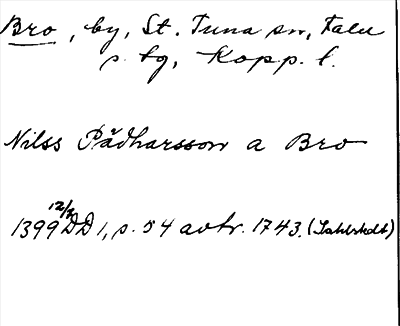 Bro, by, St. Tuna sn, Falu
s. tg, Kopp. l.
Nilss Pædharsson a Bro
1399 12/3 DD 1, s. 54 avtr. 1743. (Sahlstedt)